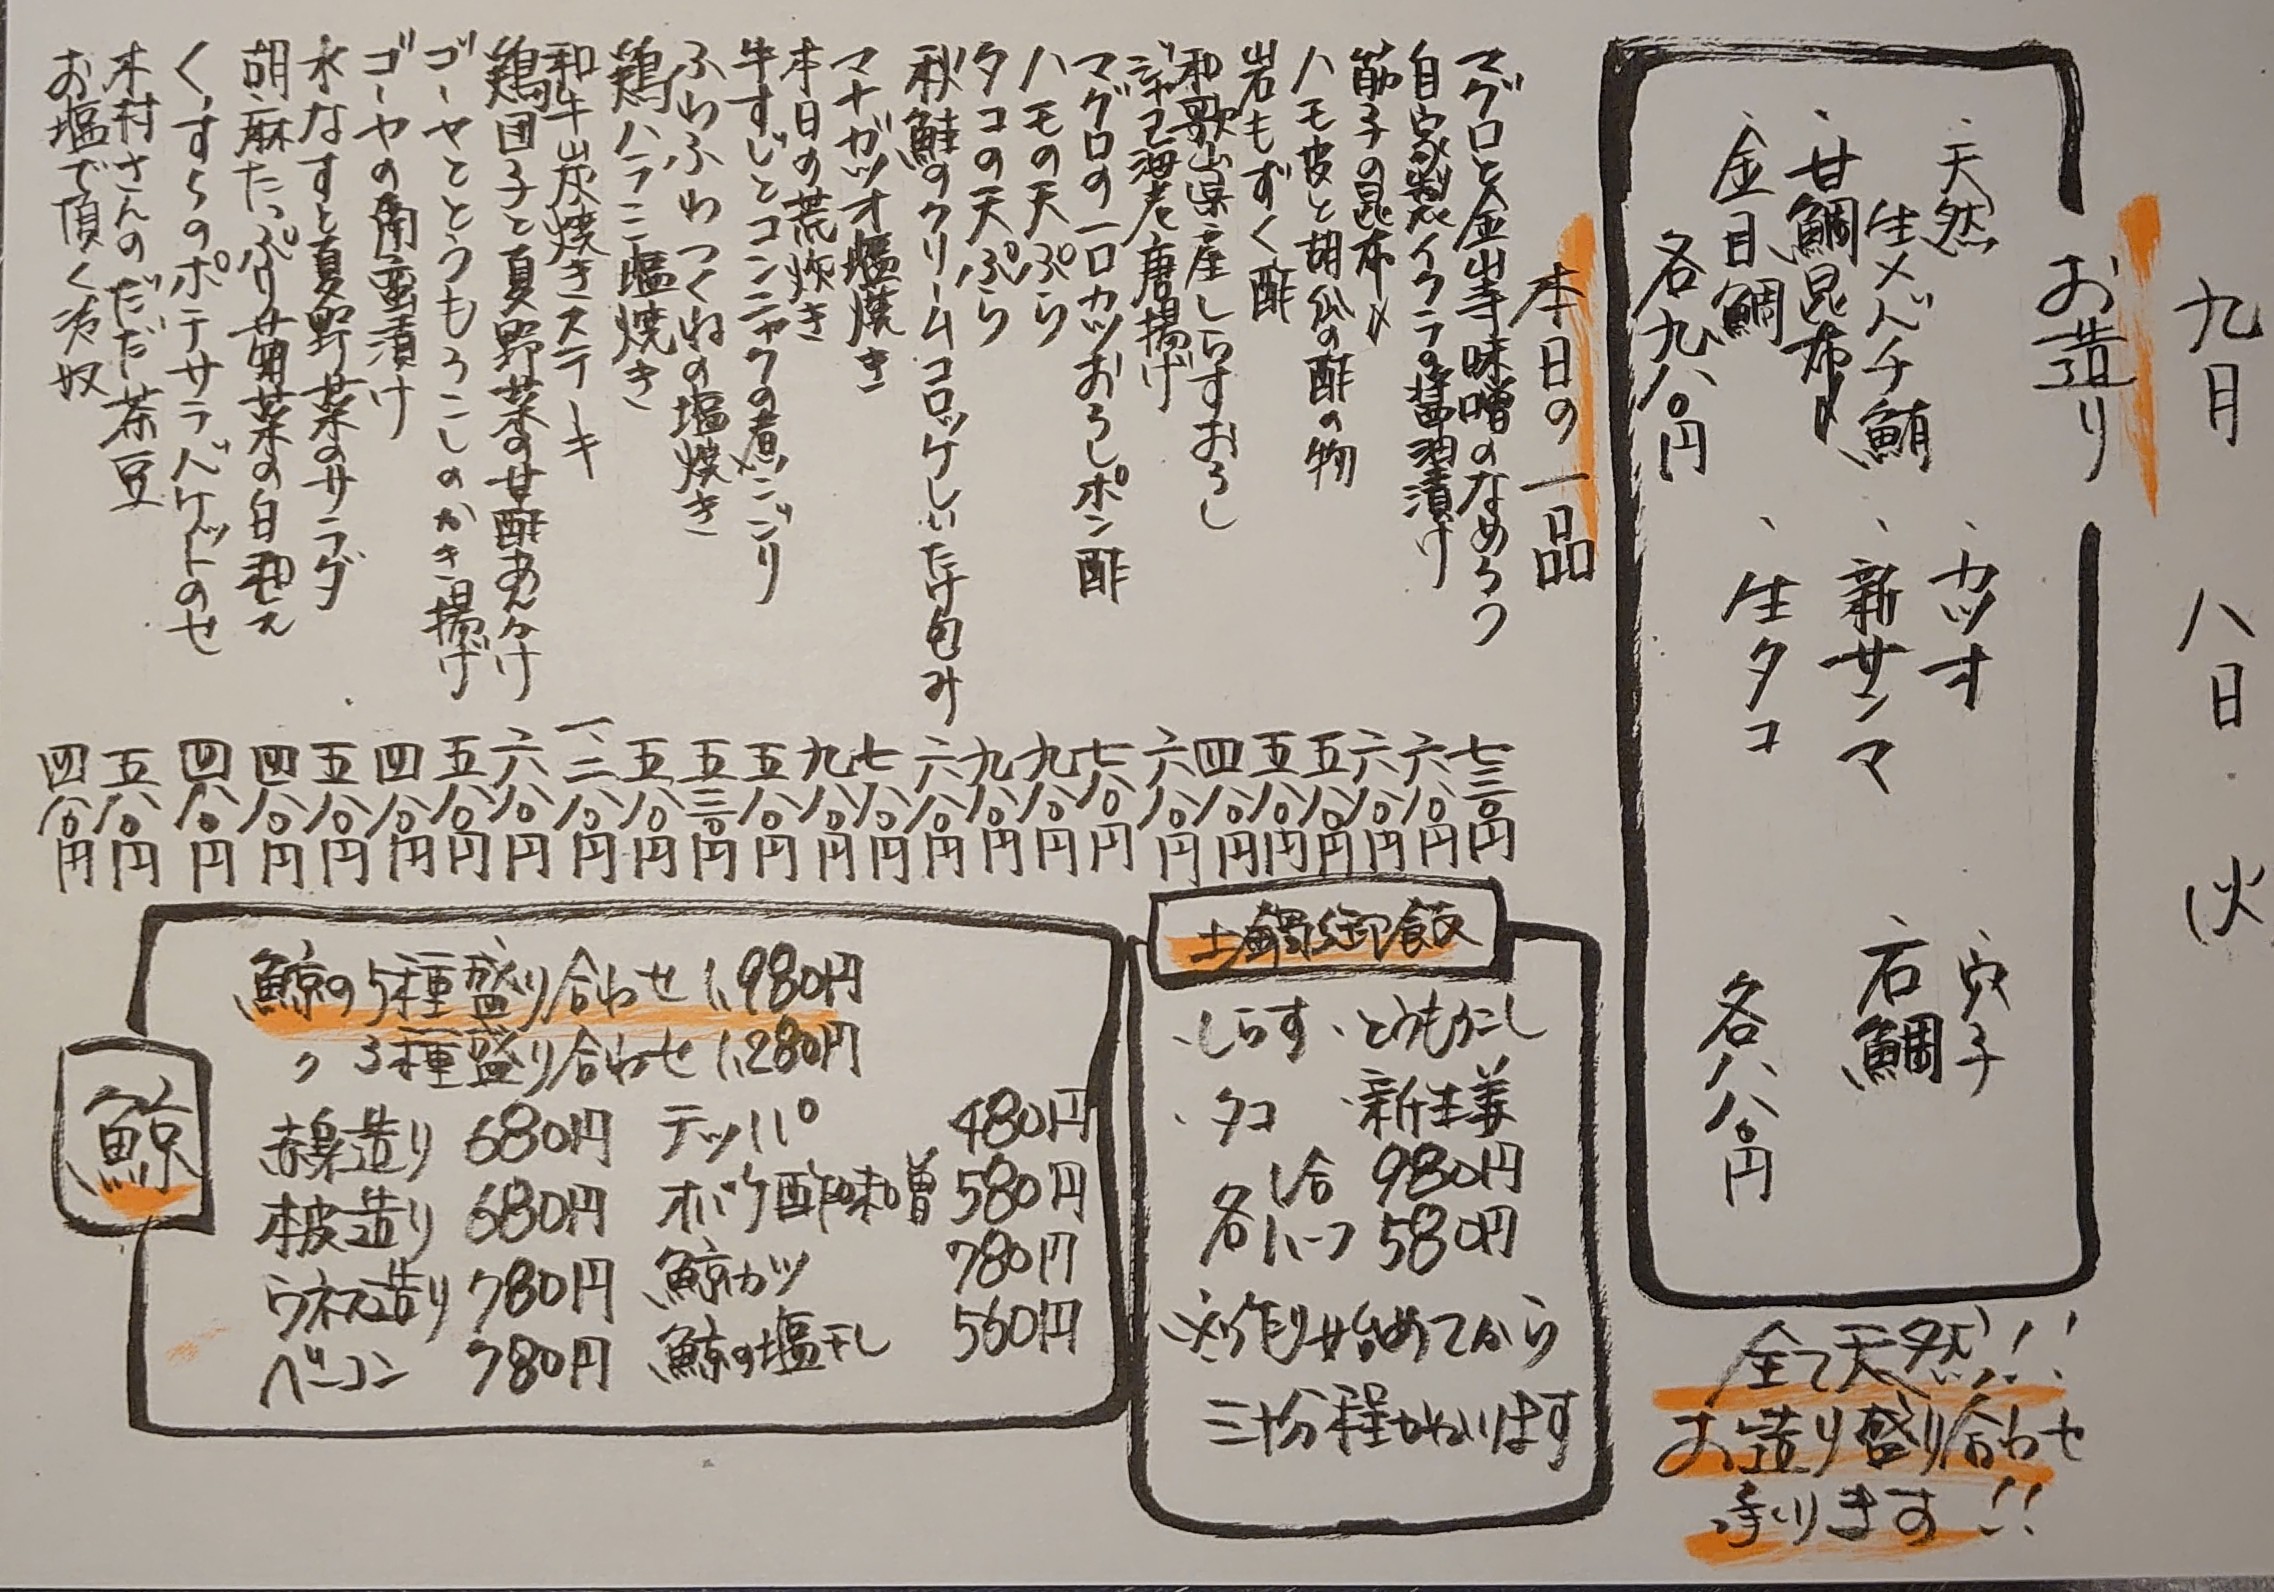 九月 八日・火
お造り
天然
・生メバチ鮪
・甘鯛昆布〆
・金目鯛
各九八〇円
・カツオ
・新サンマ
・生タコ
・穴子
・石鯛
各八八〇円
全て天然!!
お造り盛り合わせ
承ります!!
本日の一品
マグロと金山寺味噌のなめろう 七三〇円
自家製イクラの醤油漬け 六八〇円
筋子の昆布〆 六八〇円
ハモ皮と胡瓜の酢の物 五八〇円
岩もずく酢 五八〇円
和歌山県産しらすおろし 四八〇円
海老唐揚げ 六八〇円
マグロの一口カツおろしポン酢 七八〇円
ハモの天ぷら 九八〇円
タコの天ぷら 九八〇円
秋鮭のクリームコロッケしいたけ包み 六八〇円
マナガツオ塩焼き 七八〇円
本日の荒炊き 九八〇円
牛すじとコンニャクの煮こごり 五八〇円
ふわふわつくねの塩焼き 五三〇円
鶏ハラミ塩焼き 五八〇円
和牛炭焼きステーキ 一、二八〇円
鶏団子と夏野菜の甘酢あんかけ 六八〇円
ゴーヤととうもろこしのかき揚げ 五八〇円
ゴーヤの南蛮漬け 四八〇円
水なすと夏野菜のサラダ 五八〇円
胡麻たっぷり菊菜の白和え 四八〇円
くずらのポテサラバケットのせ 四八〇円
木村さんのだだ茶豆 五八〇円
お塩で頂く冷奴 四八〇円
土鍋御飯
・しらす ・とうもろこし
・タコ ・新生姜
各一合 980円
各ハーフ 580円
※作り始めてから
三十分程かかります
鯨
鯨の5種盛り合わせ 1,980円
〃 3種盛り合わせ 1,280円
赤身造り 680円
本皮造り 680円
ウネス造り 780円
ベーコン 780円
テッパ 480円
オバケ酢味噌 580円
鯨カツ 780円
鯨の塩干し 560円